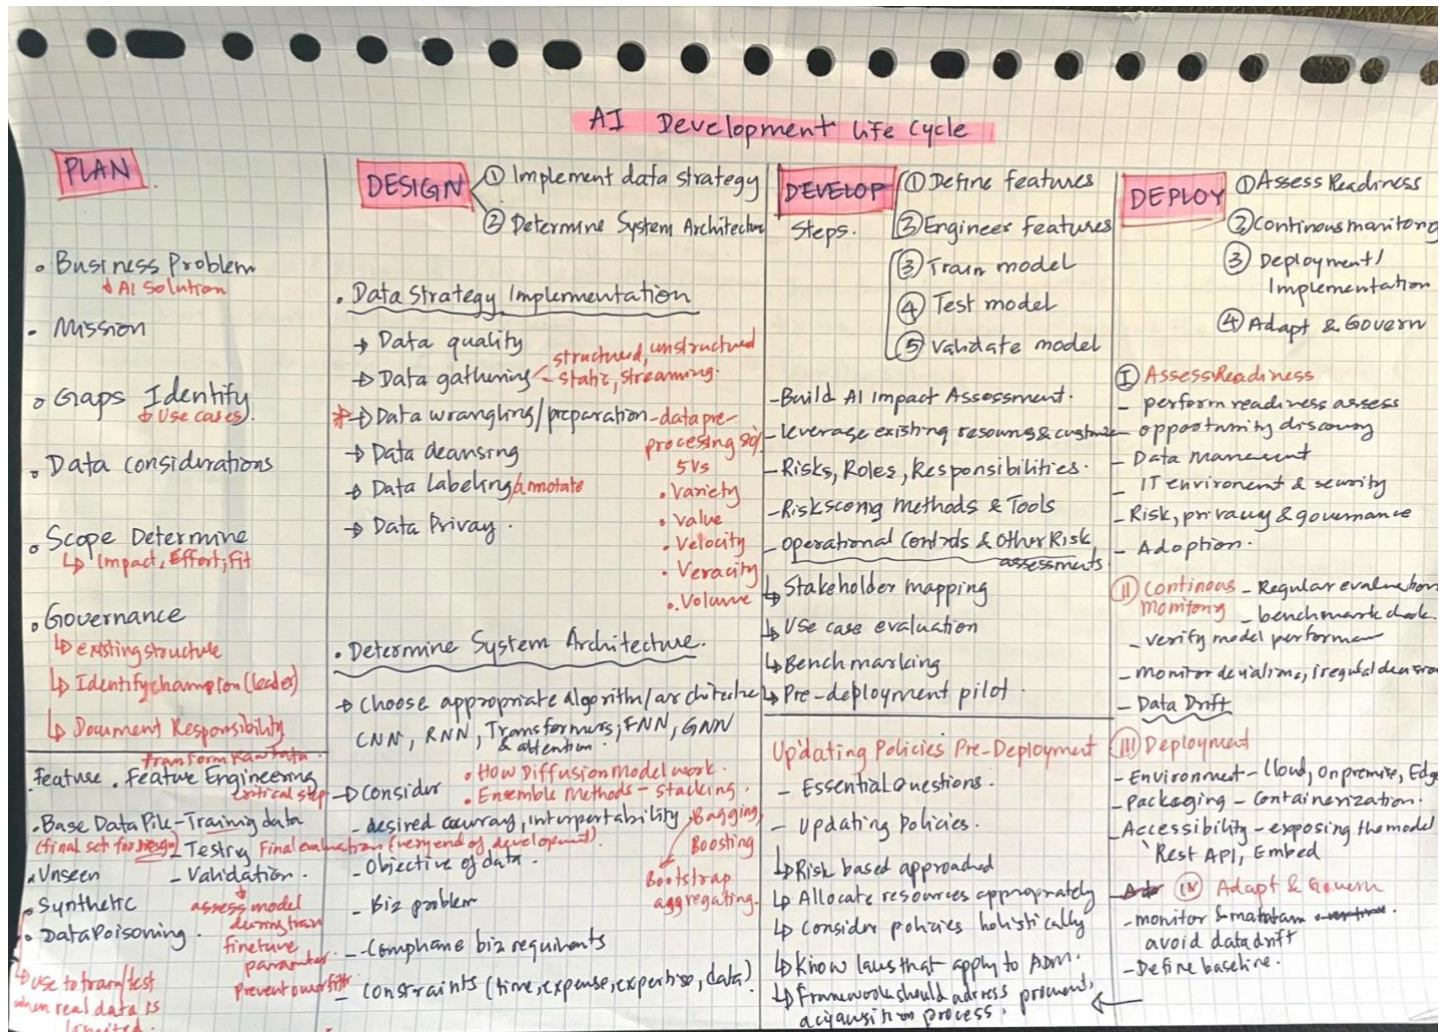 AI Development Life Cycle
PLAN
• Business Problem
↓ AI Solution
• Mission
• Gaps Identify
↓ Use cases)
• Data considerations
• Scope Determine
↳ Impact, Effort, Fit
• Governance
↳ existing structure
↳ Identify champion (leader)
↳ Document Responsibility
transform Raw data
Feature • Feature Engineering
critical step
• Base Data Pile - Training data
(final set for design) - Testing Final evaluation (very end of development).
• Unseen - Validation
• Synthetic
assess model
during train
finetune
parameter
prevent overfit
• Data Poisoning.
↳ use to train/test
when real data is
limited.
DESIGN
① Implement data strategy
② Determine System Architecture
• Data Strategy Implementation
→ Data quality
→ Data gathering - structured, unstructured
- static, streaming.
* → Data wrangling/preparation - data pre-
processing 80%
→ Data cleansing
→ Data Labeling/annotate
→ Data Privay.
5Vs
• Variety
• Value
• Velocity
• Veracity
• Volume
• Determine System Architecture.
→ Choose appropriate algorithm/architecture
CNN, RNN, Transformers, FNN, GNN
& attention.
→ Consider
• How Diffusion model work.
• Ensemble Methods - stacking.
Bagging
Boosting
Bootstrap
aggregating.
- desired accuracy, interpertability
- Objective of data.
- Biz problem
- Compliance biz requirments
- Constraints (time, expense, expertise, data)
DEVELOP
Steps.
① Define features
② Engineer features
③ Train model
④ Test model
⑤ Validate model
- Build AI Impact Assessment.
- leverage existing resources & customize
- Risks, Roles, Responsibilities.
- Risk scoring Methods & Tools
- Operational Controls & Other Risk
assessments
↳ Stakeholder mapping
↳ Use case evaluation
↳ Benchmarking
↳ Pre-deployment pilot.
Updating Policies Pre-Deployment
- Essential Questions.
- Updating Policies.
↳ Risk based approached
↳ Allocate resources appropriately
↳ Consider policies holistically
↳ Know laws that apply to ADM.
↳ Framework should address
acquisition process.
DEPLOY
① Assess Readiness
② Continous monitorg
③ Deployment/
Implementation
④ Adapt & Govern
Ⅰ Assess Readiness
- perform readiness assess
- opportunity discovery
- Data
- IT enviroment & security
- Risk, privacy & governance
- Adoption.
Ⅱ Continous - Regular evaluation
monitorg - benchmark check
- verify model
- monitor
- Data Drift
Ⅲ Deployment
- Environment - Cloud, On premise, Edge
- Packaging - Containerization.
- Accessibility - exposing the model
Rest API, Embed
Ⅳ Adapt & Govern
- monitor &
avoid data drift
- Define baseline.